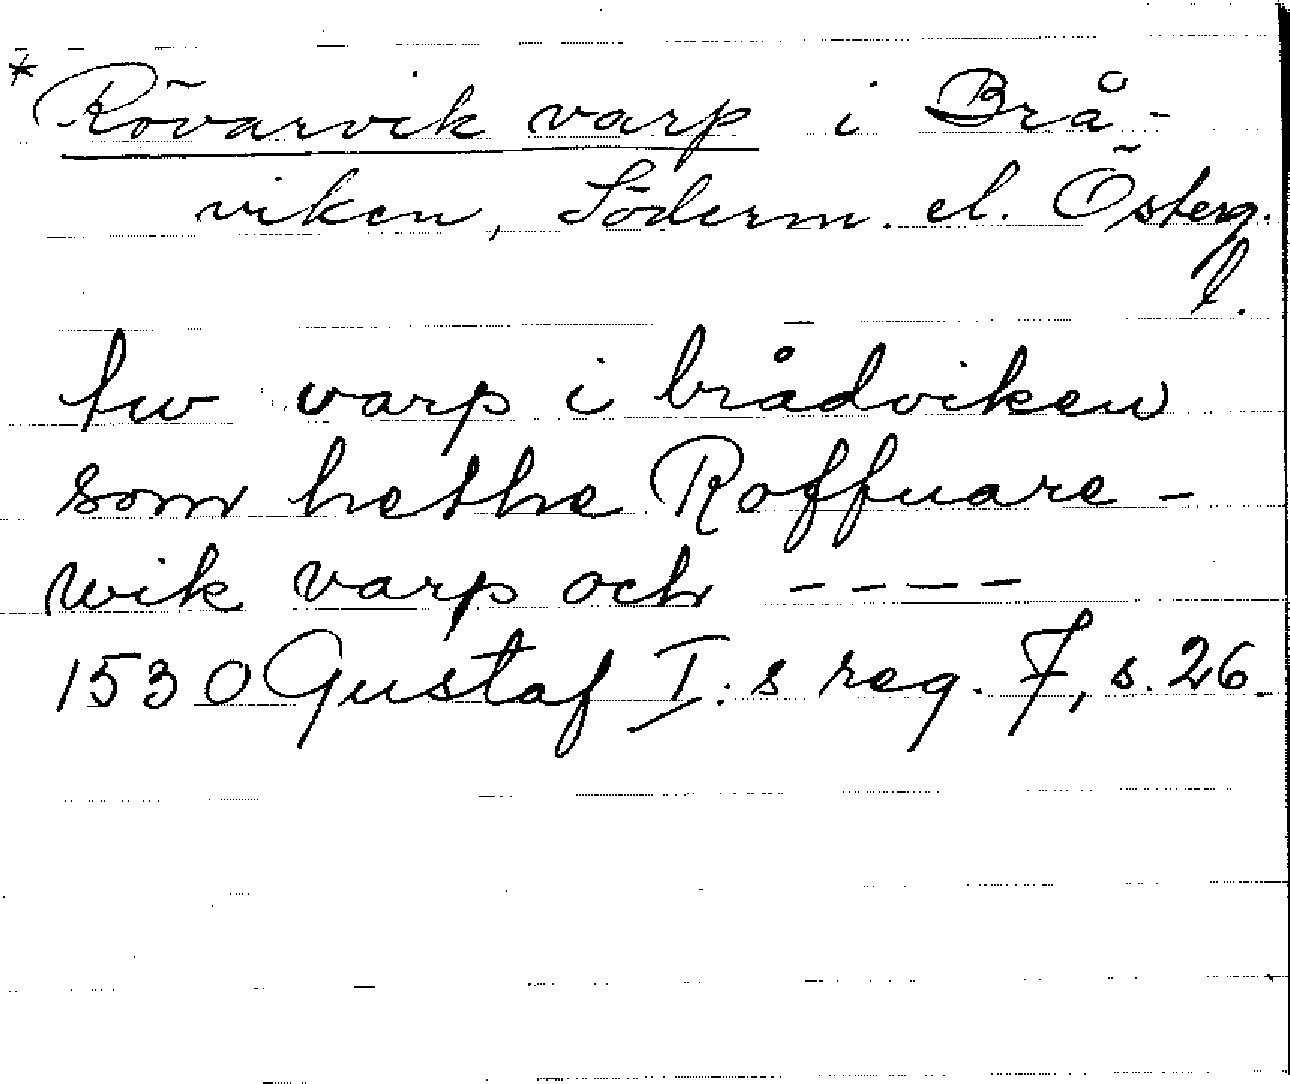 * Rövarvik varp i Brå-
viken, Söderm. el. Österg.
l.
tw varp i brådviken
som hethe Roffuare-
wik varp och ----
1530 Gustaf I:s reg. 7, s. 26.